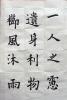 一人之憲
遺身利物
櫛風沐雨